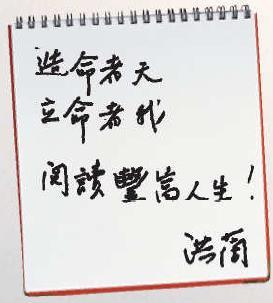 造命者天
立命者我
閱讀豐富人生!
洪蘭